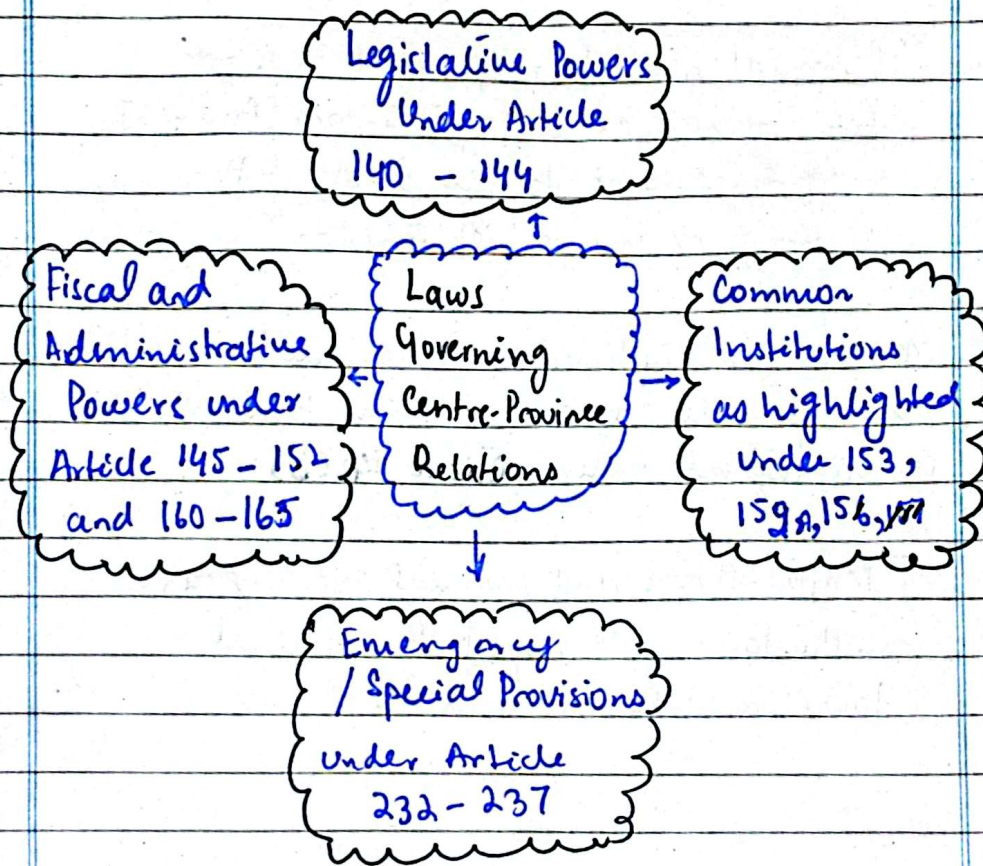 Legislative Powers
Under Article
140 - 144
Fiscal and
Administrative
Powers under
Article 145 - 152
and 160 - 165
Laws
Governing
Centre-Province
Relations
Common
Institutions
as highlighted
under 153,
156,
Emergency
/ Special Provisions
under Article
232 - 237